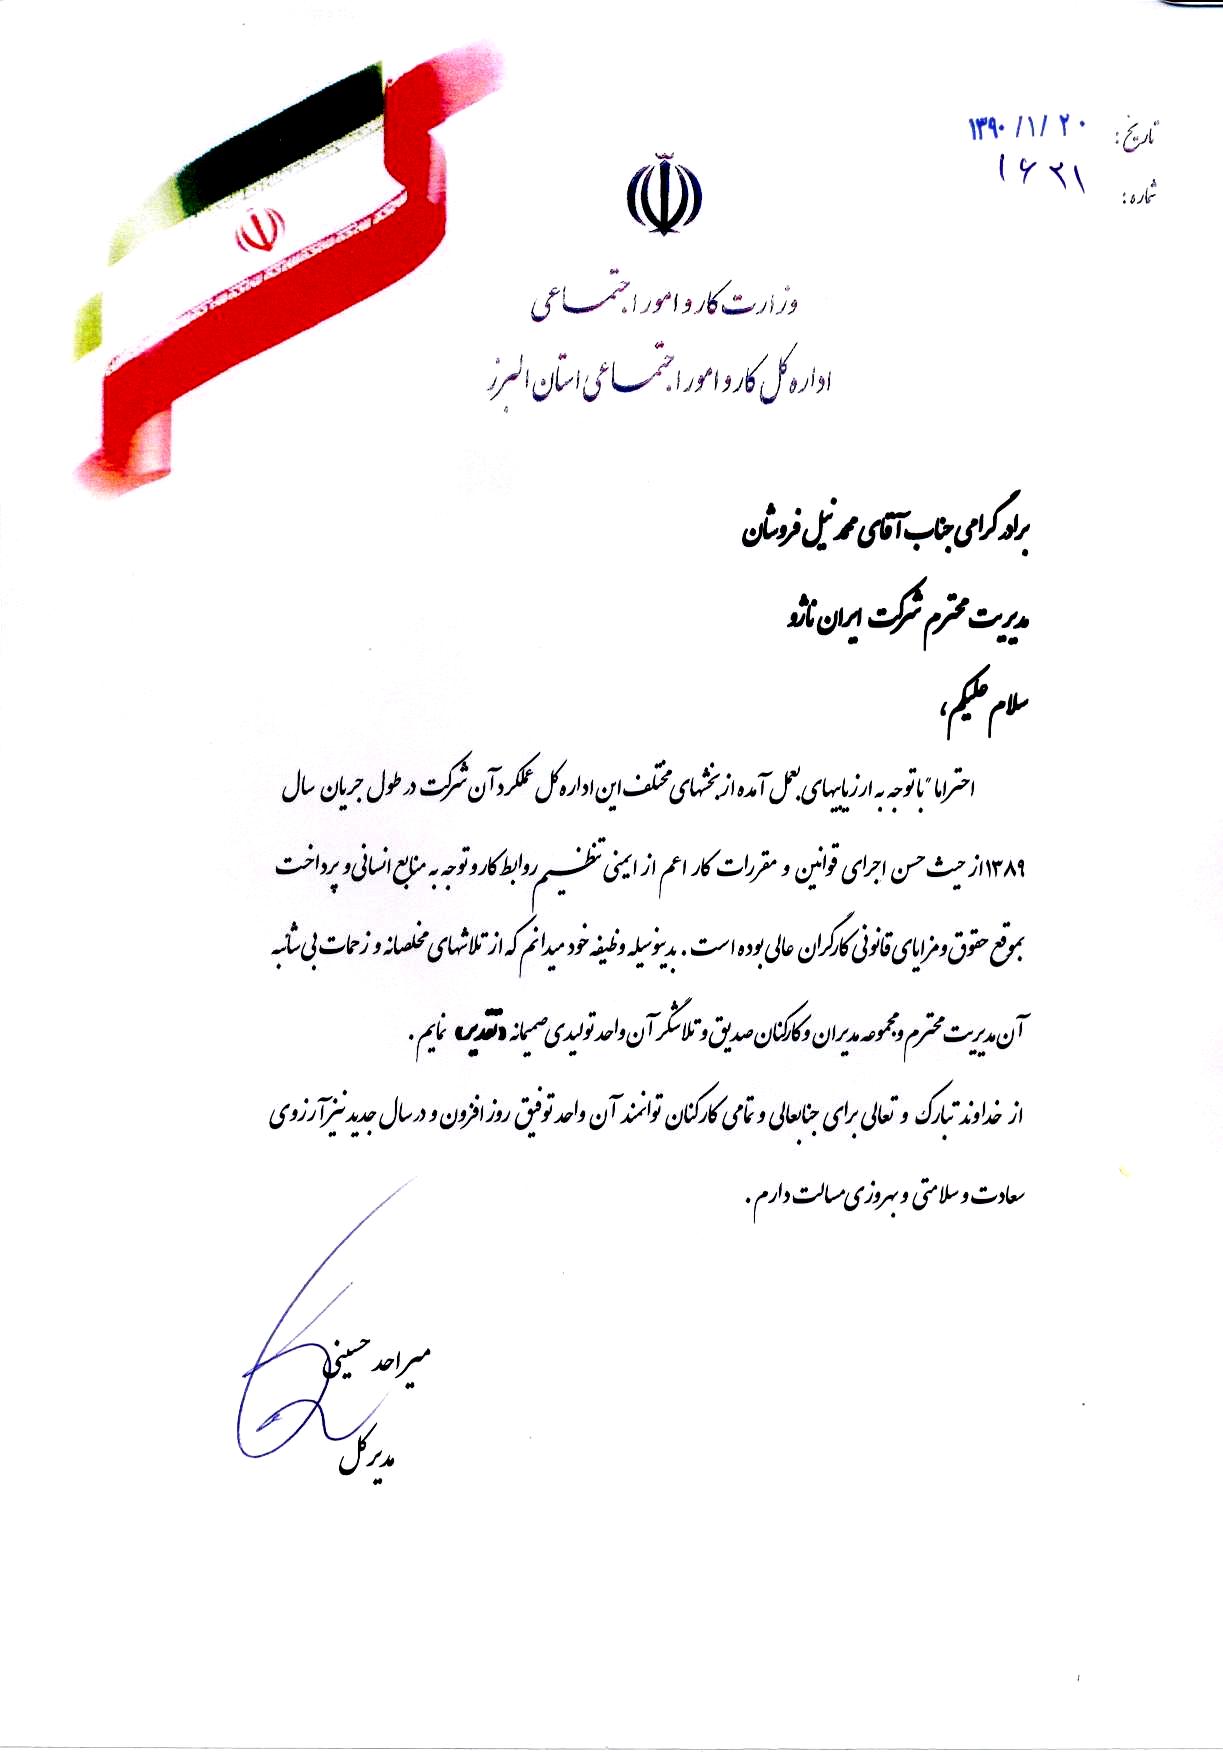 تاریخ: ۱۳۹۰/۱/۲۰
شماره: ۱۶۲۱
وزارت کار و امور اجتماعی
اداره کل کار و امور اجتماعی استان البرز
برادر گرامی جناب آقای محمد نیل فروشان
مدیریت محترم شرکت ایران ناژو
سلام علیکم،
احتراما" با توجه به ارزیابیهای بعمل آمده از بخشهای مختلف این اداره کل عملکرد آن شرکت در طول جریان سال
۱۳۸۹ از حیث حسن اجرای قوانین و مقررات کار اعم از ایمنی تنظیم روابط کار و توجه به منابع انسانی و پرداخت
بموقع حقوق و مزایای قانونی کارگران عالی بوده است . بدینوسیله وظیفه خود میدانم که از تلاشهای مخلصانه و زحمات بی شائبه
آن مدیریت محترم و مجموعه مدیران و کارکنان صدیق و تلاشگر آن واحد تولیدی صمیمانه «تقدیر» نمایم .
از خداوند تبارک و تعالی برای جنابعالی و تمامی کارکنان توانمند آن واحد توفیق روز افزون و در سال جدید نیز آرزوی
سعادت و سلامتی و بهروزی مسالت دارم .
میراحد حسینی
مدیر کل